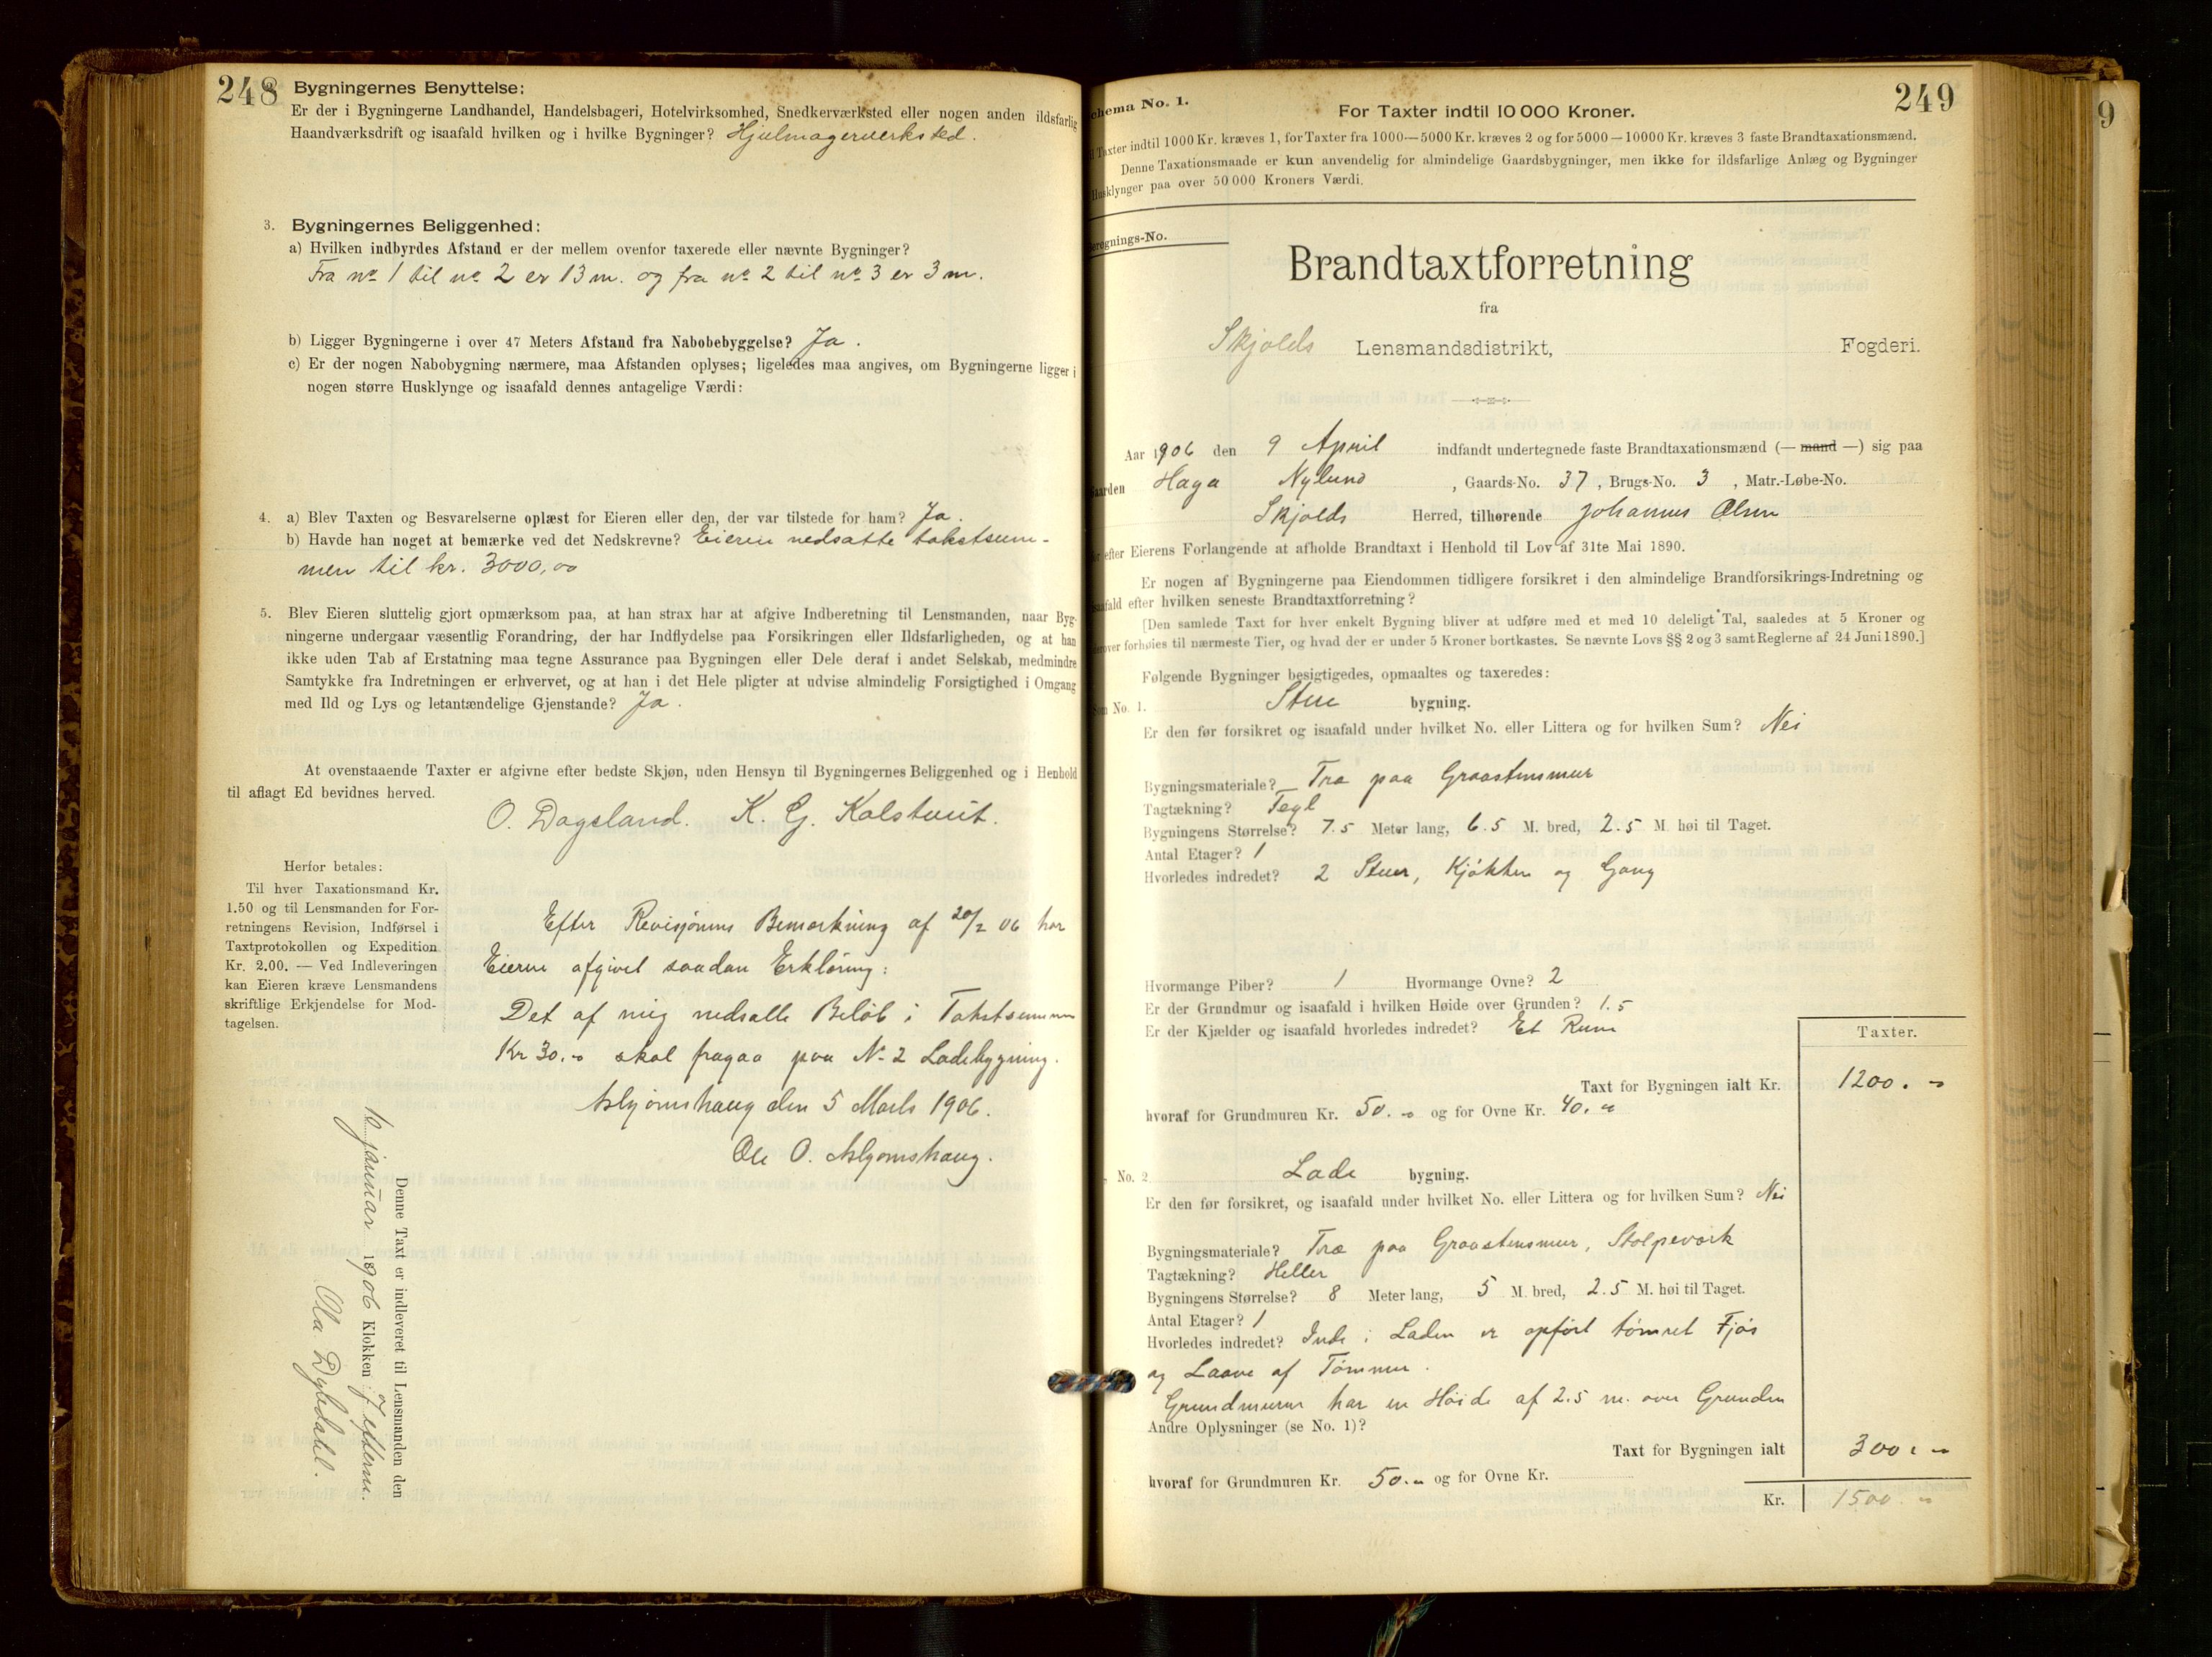 248
Bygningernes Benyttelse:
Er der i Bygningerne Landhandel, Handelsbageri, Hotelvirksomhed, Snedkerværksted eller nogen anden ildsfarlig
Haandværksdrift og isaafald hvilken og i hvilke Bygninger? Hjulmagerverksted.
3. Bygningernes Beliggenhed:
a) Hvilken indbyrdes Afstand er der mellem ovenfor taxerede eller nævnte Bygninger?
Fra no 1 til no 2 er 13 m. og fra no 2 til no 3 er 3 m.
b) Ligger Bygningerne i over 47 Meters Afstand fra Nabobebyggelse? Ja.
c) Er der nogen Nabobygning nærmere, maa Afstanden oplyses; ligeledes maa angives, om Bygningerne ligger i
nogen større Husklynge og isaafald dennes antagelige Værdi:
4. a) Blev Taxten og Besvarelserne oplæst for Eieren eller den, der var tilstede for ham? Ja.
b) Havde han noget at bemærke ved det Nedskrevne? Eieren nedsatte takstsum-
men til kr. 3000,00
5. Blev Eieren sluttelig gjort opmærksom paa, at han strax har at afgive Indberetning til Lensmanden, naar Byg-
ningerne undergaar væsentlig Forandring, der har Indflydelse paa Forsikringen eller Ildsfarligheden, og at han
ikke uden Tab af Erstatning maa tegne Assurance paa Bygningen eller Dele deraf i andet Selskab, medmindre
Samtykke fra Indretningen er erhvervet, og at han i det Hele pligter at udvise almindelig Forsigtighed i Omgang
med Ild og Lys og letantændelige Gjenstande? Ja.
At ovenstaaende Taxter er afgivne efter bedste Skjøn, uden Hensyn til Bygningernes Beliggenhed og i Henhold
til aflagt Ed bevidnes herved.
O. Dagsland. K. G. Kalstveit.
Herfor betales:
Til hver Taxationsmand Kr.
1.50 og til Lensmanden for For-
retningens Revision, Indførsel i
Taxtprotokollen og Expedition
Kr. 2.00. — Ved Indleveringen
kan Eieren kræve Lensmandens
skriftlige Erkjendelse for Mod-
tagelsen.
Efter Revisjonens Bemærkning af 20/2 06 har
Eieren afgivet saadan Erklæring:
Det af mig nedsatte Beløb i Takstsummen
Kr 30.- skal fragaa paa No 2 Ladebygning.
den 5 Marts 1906.
Ole O.
Denne Taxt er indleveret til Lensmanden den
januar 1906 Klokken 7 efterm.
Ola Dybdahl.
249
Schema No. 1.
For Taxter indtil 10 000 Kroner.
Taxter indtil 1000 Kr. kræves 1, for Taxter fra 1000—5000 Kr. kræves 2 og for 5000—10000 Kr. kræves 3 faste Brandtaxationsmænd.
Denne Taxationsmaade er kun anvendelig for almindelige Gaardsbygninger, men ikke for ildsfarlige Anlæg og Bygninger
Husklynger paa over 50 000 Kroners Værdi.
Beregnings-No.
Brandtaxtforretning
fra
Skjolds Lensmandsdistrikt, Fogderi.
Aar 1906 den 9 April indfandt undertegnede faste Brandtaxationsmænd (— mand —) sig paa
Gaarden Haga Nylund, Gaards-No. 37, Brugs-No. 3, Matr.-Løbe-No.
Skjolds Herred, tilhørende Johannes Olsen
efter Eierens Forlangende at afholde Brandtaxt i Henhold til Lov af 31te Mai 1890.
Er nogen af Bygningerne paa Eiendommen tidligere forsikret i den almindelige Brandforsikrings-Indretning og
isaafald efter hvilken seneste Brandtaxtforretning?
[Den samlede Taxt for hver enkelt Bygning bliver at udføre med et med 10 deleligt Tal, saaledes at 5 Kroner og
derover forhøies til nærmeste Tier, og hvad der er under 5 Kroner bortkastes. Se nævnte Lovs §§ 2 og 3 samt Reglerne af 24 Juni 1890.]
Følgende Bygninger besigtigedes, opmaaltes og taxeredes:
Som No. 1. Stue bygning.
Er den før forsikret og isaafald under hvilket No. eller Littera og for hvilken Sum? Nei
Bygningsmateriale? Træ paa Graastensmur
Tagtækning? Tegl
Bygningens Størrelse? 7.5 Meter lang, 6.5 M. bred, 2.5 M. høi til Taget.
Antal Etager? 1
Hvorledes indredet? 2 Stuer, Kjøkken og Gang
Hvormange Piber? 1 Hvormange Ovne? 2
Er der Grundmur og isaafald i hvilken Høide over Grunden? 1.5
Er der Kjælder og isaafald hvorledes indredet? Et Rum
Taxter.
Taxt for Bygningen ialt Kr. 1200.-
hvoraf for Grundmuren Kr. 50.- og for Ovne Kr. 40.-
No. 2 Lade bygning.
Er den før forsikret, og isaafald under hvilket No. eller Littera og for hvilken Sum? Nei
Bygningsmateriale? Træ paa Graastensmur, Stolpeverk
Tagtækning? Heller
Bygningens Størrelse? 8 Meter lang, 5 M. bred, 2.5 M. høi til Taget.
Antal Etager? 1
Hvorledes indredet? Inde i Laden er opført tømret Fjøs
og Laave af Tømmer.
Grundmuren har en Høide af 2.5 m. over Grunden
Andre Oplysninger (se No. 1)?
Taxt for Bygningen ialt 300.-
hvoraf for Grundmuren Kr. 50.- og for Ovne Kr.
Kr. 1500.-
9